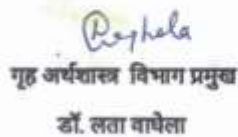 गृह अर्थशास्त्र विभाग प्रमुख
डॉ. लता वाघेला